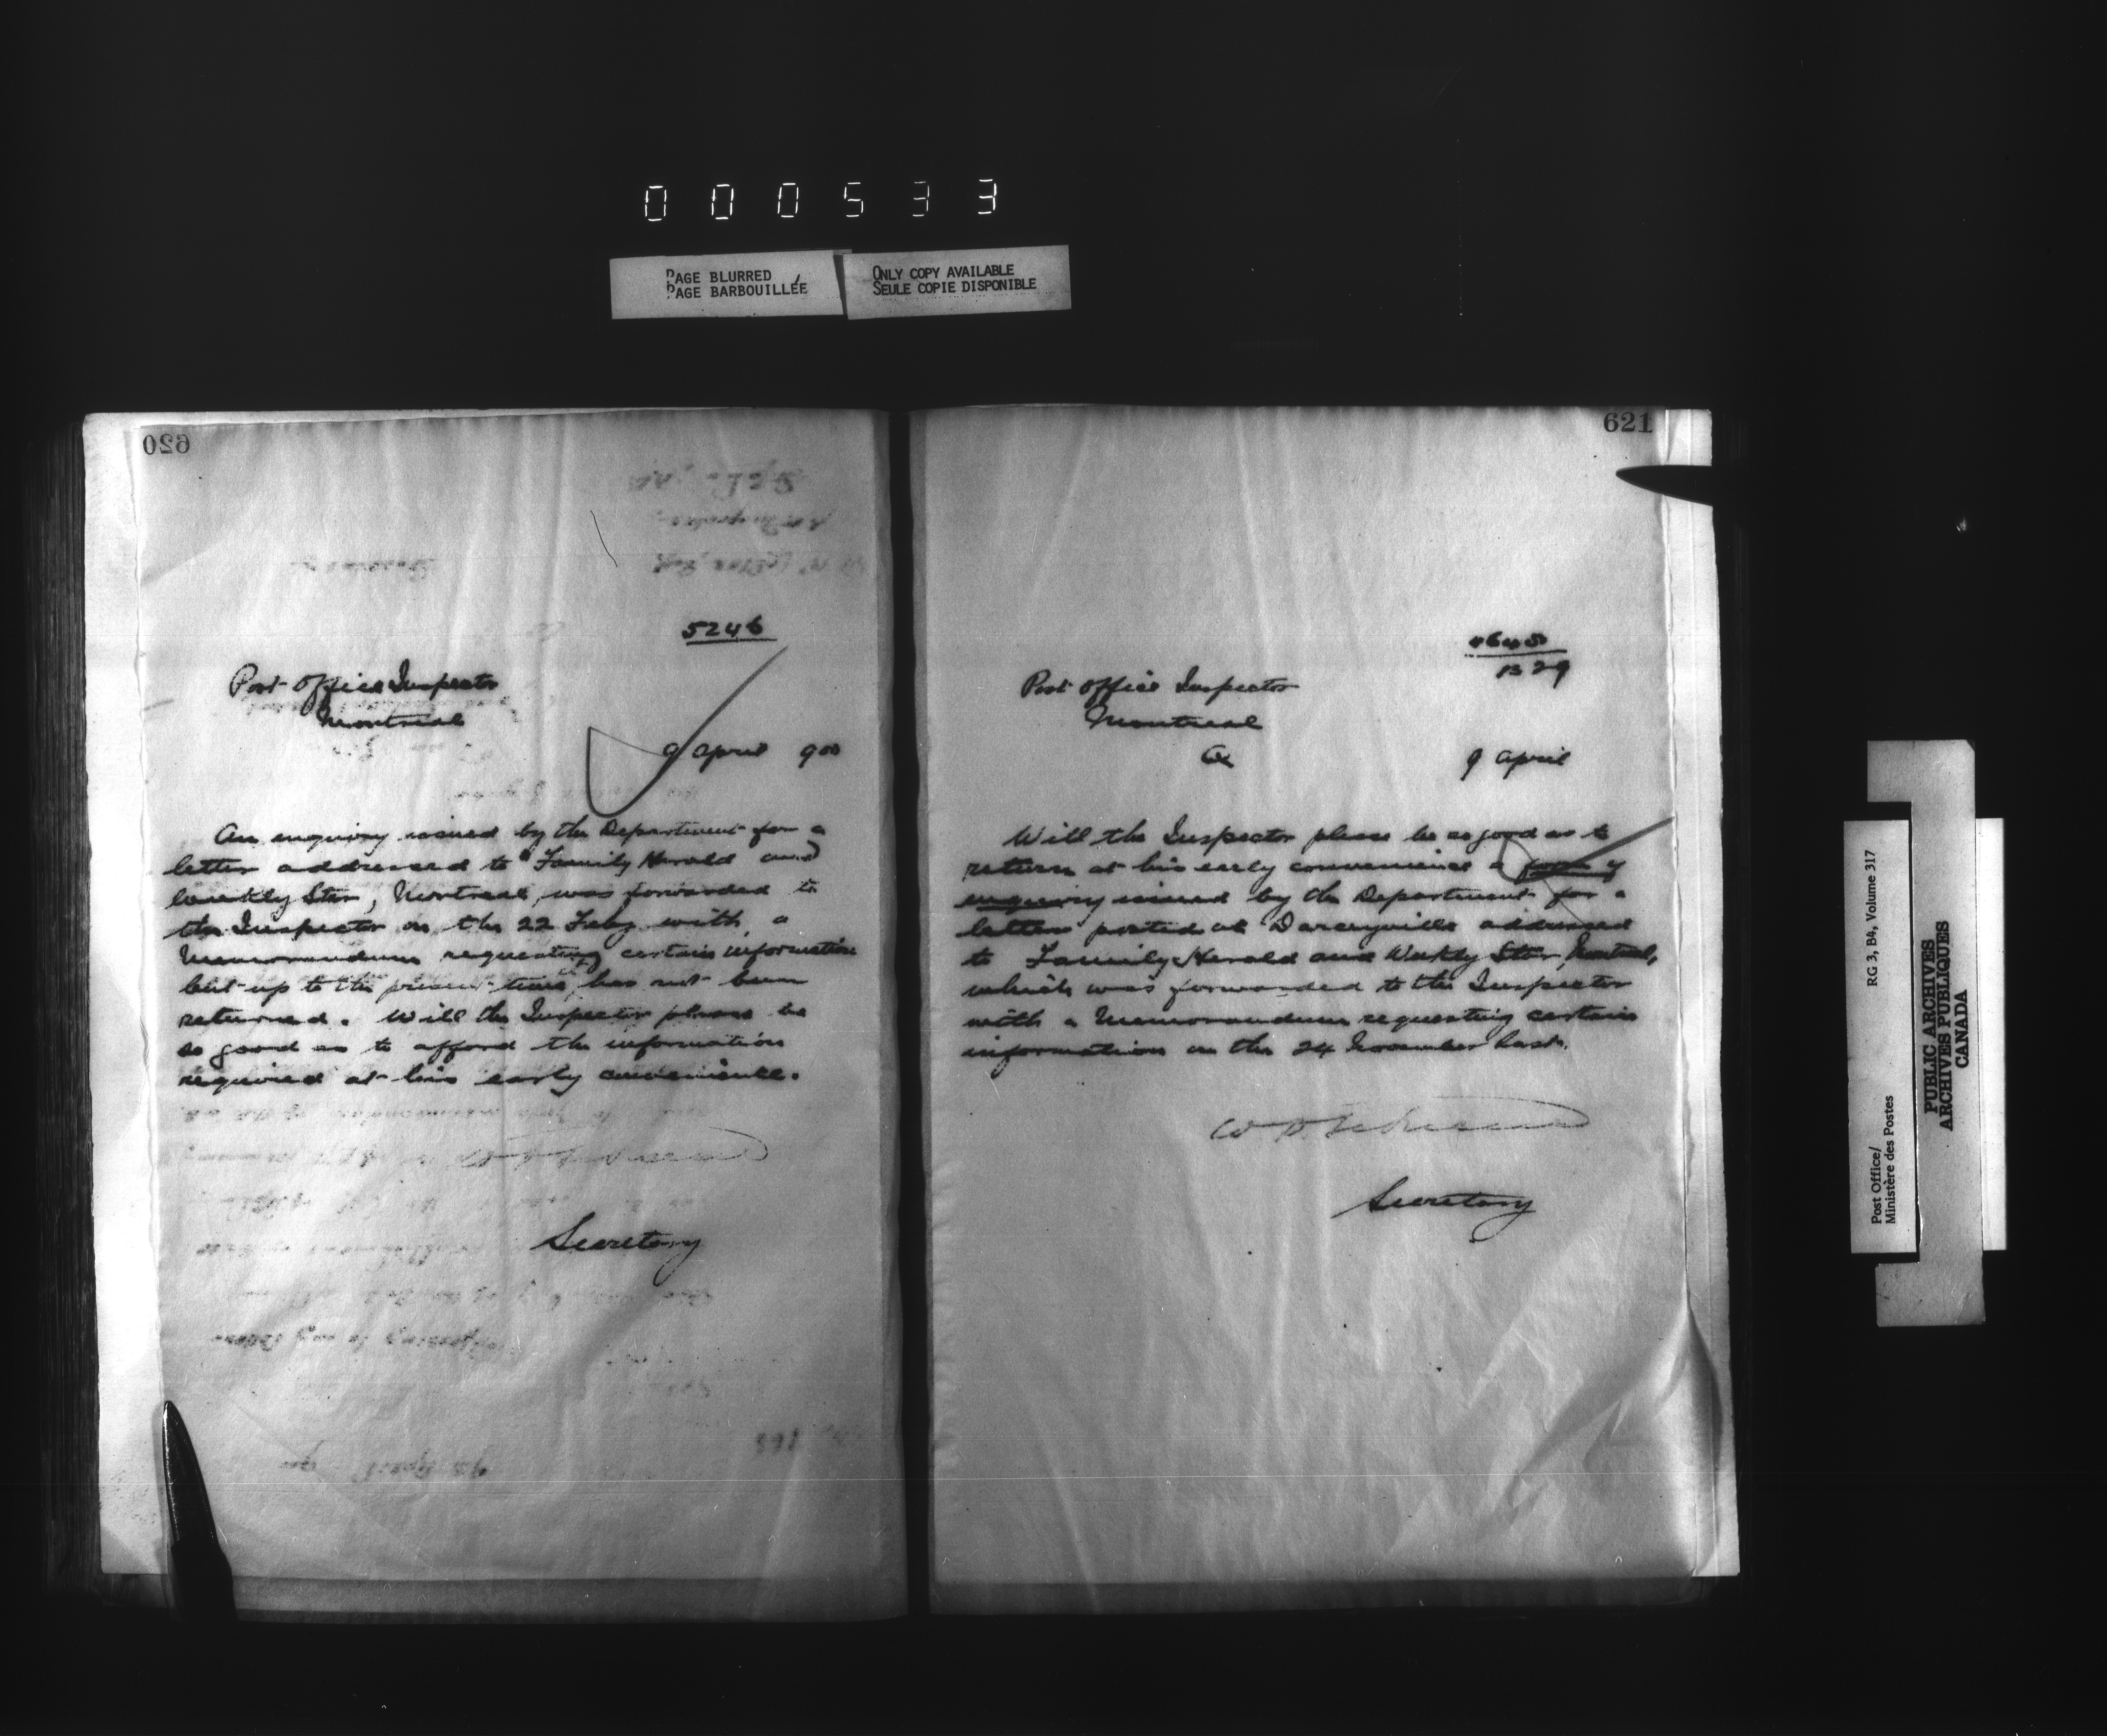 000533
PAGE BLURRED
PAGE BARBOUILLÉE
ONLY COPY AVAILABLE
SEULE COPIE DISPONIBLE
620
5246
Post Office Inspector
Montreal
9 April 900
An enquiry issued by the Department for a
letter addressed to "Family Herald and
Weekly Star, Montreal, was forwarded to
the Inspector on the 22 Feby with a
Memorandum requesting certain information
but up to the present time has not been
returned. Will the Inspector please be
so good as to afford the information
required at his early convenience.
Secretary
621
B 29
Post Office Inspector
Montreal
Q
9 April
Will the Inspector please be so good as to
return at his early convenience a form of
enquiry issued by the Department for a
letter posted at Darceyville addressed
to Family Herald and Weekly Star, Montreal,
which was forwarded to the Inspector
with a Memorandum requesting certain
information on the 24 November last.
Secretary
Post Office/
Ministère des Postes
RG 3, B4, Volume 317
PUBLIC ARCHIVES
ARCHIVES PUBLIQUES
CANADA